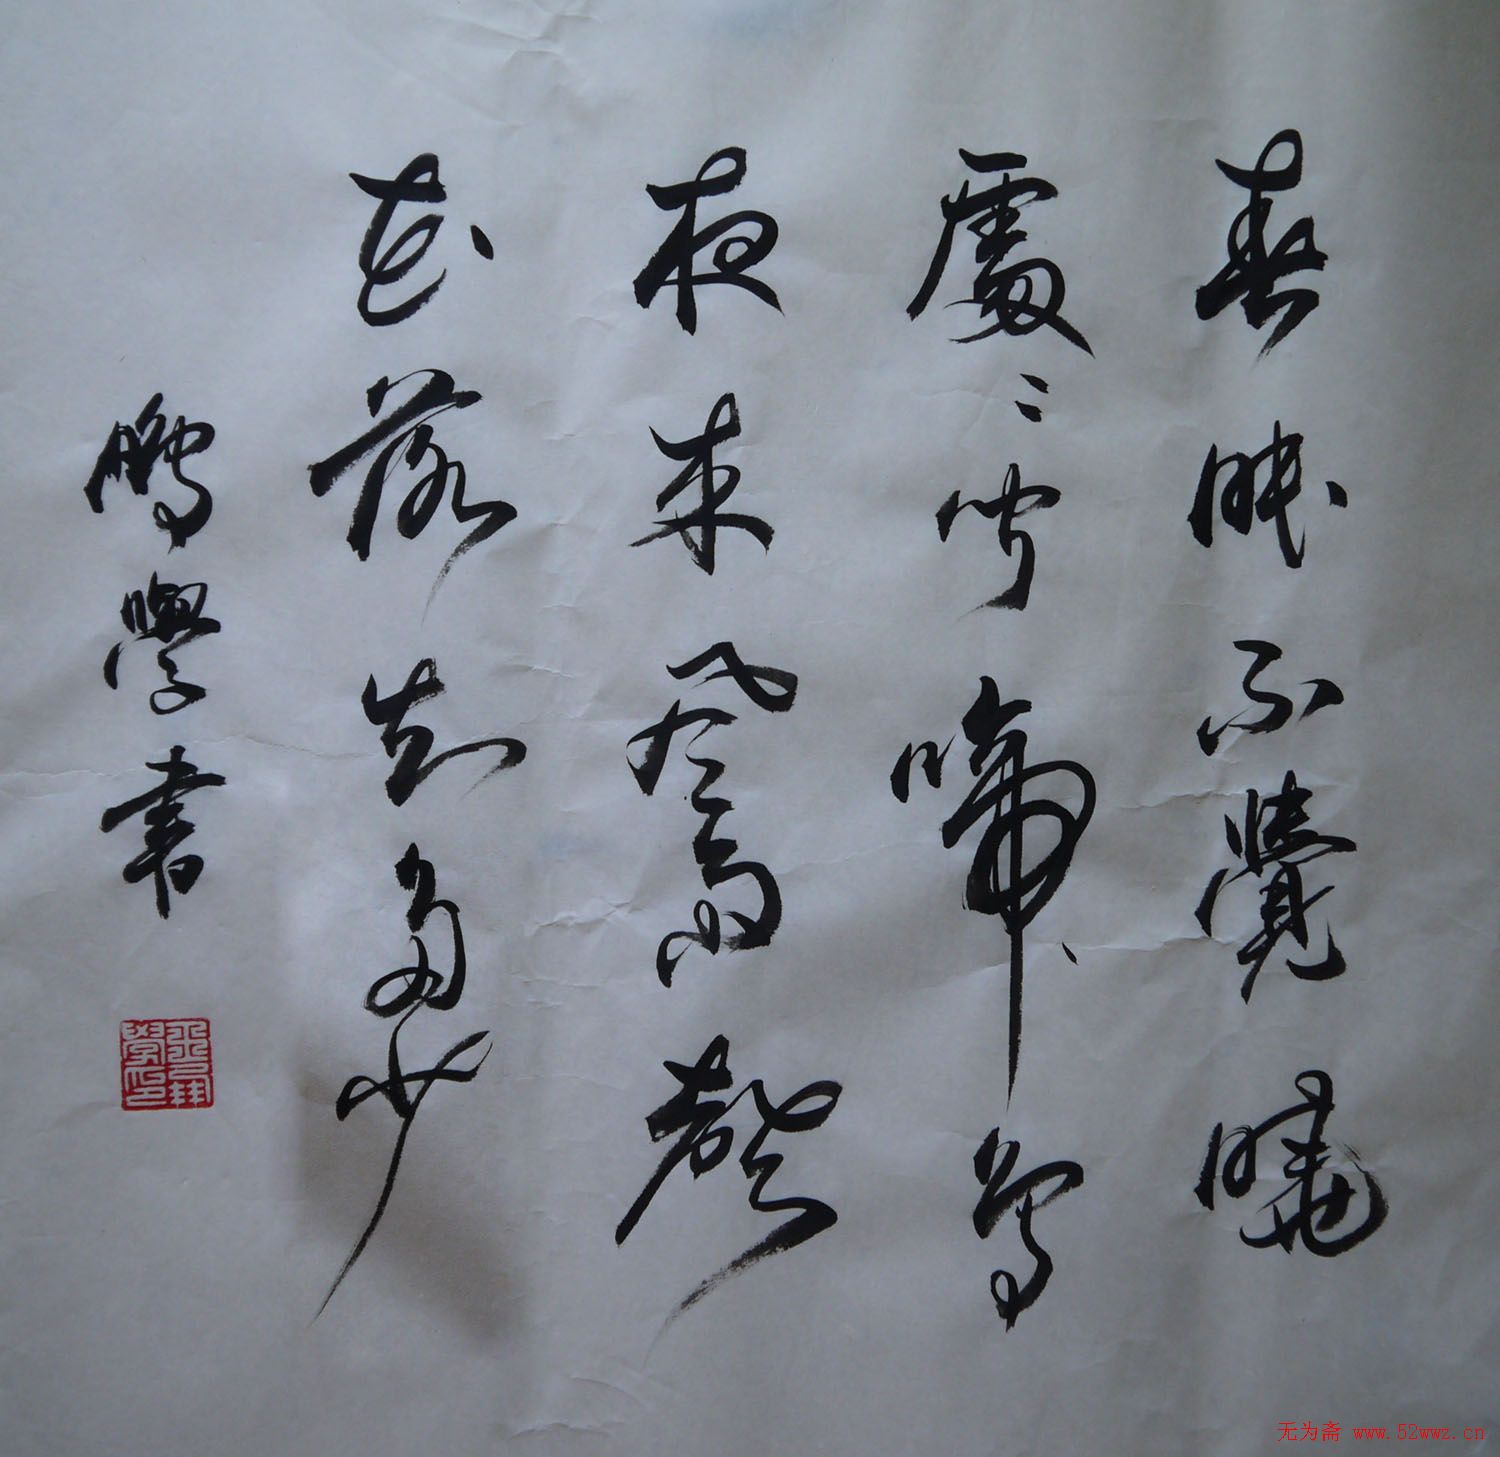 春眠不覺曉
處〻聞啼鳥
夜来風雨聲
花落知多少
鵬學書
无为斋 www.52wwz.cn